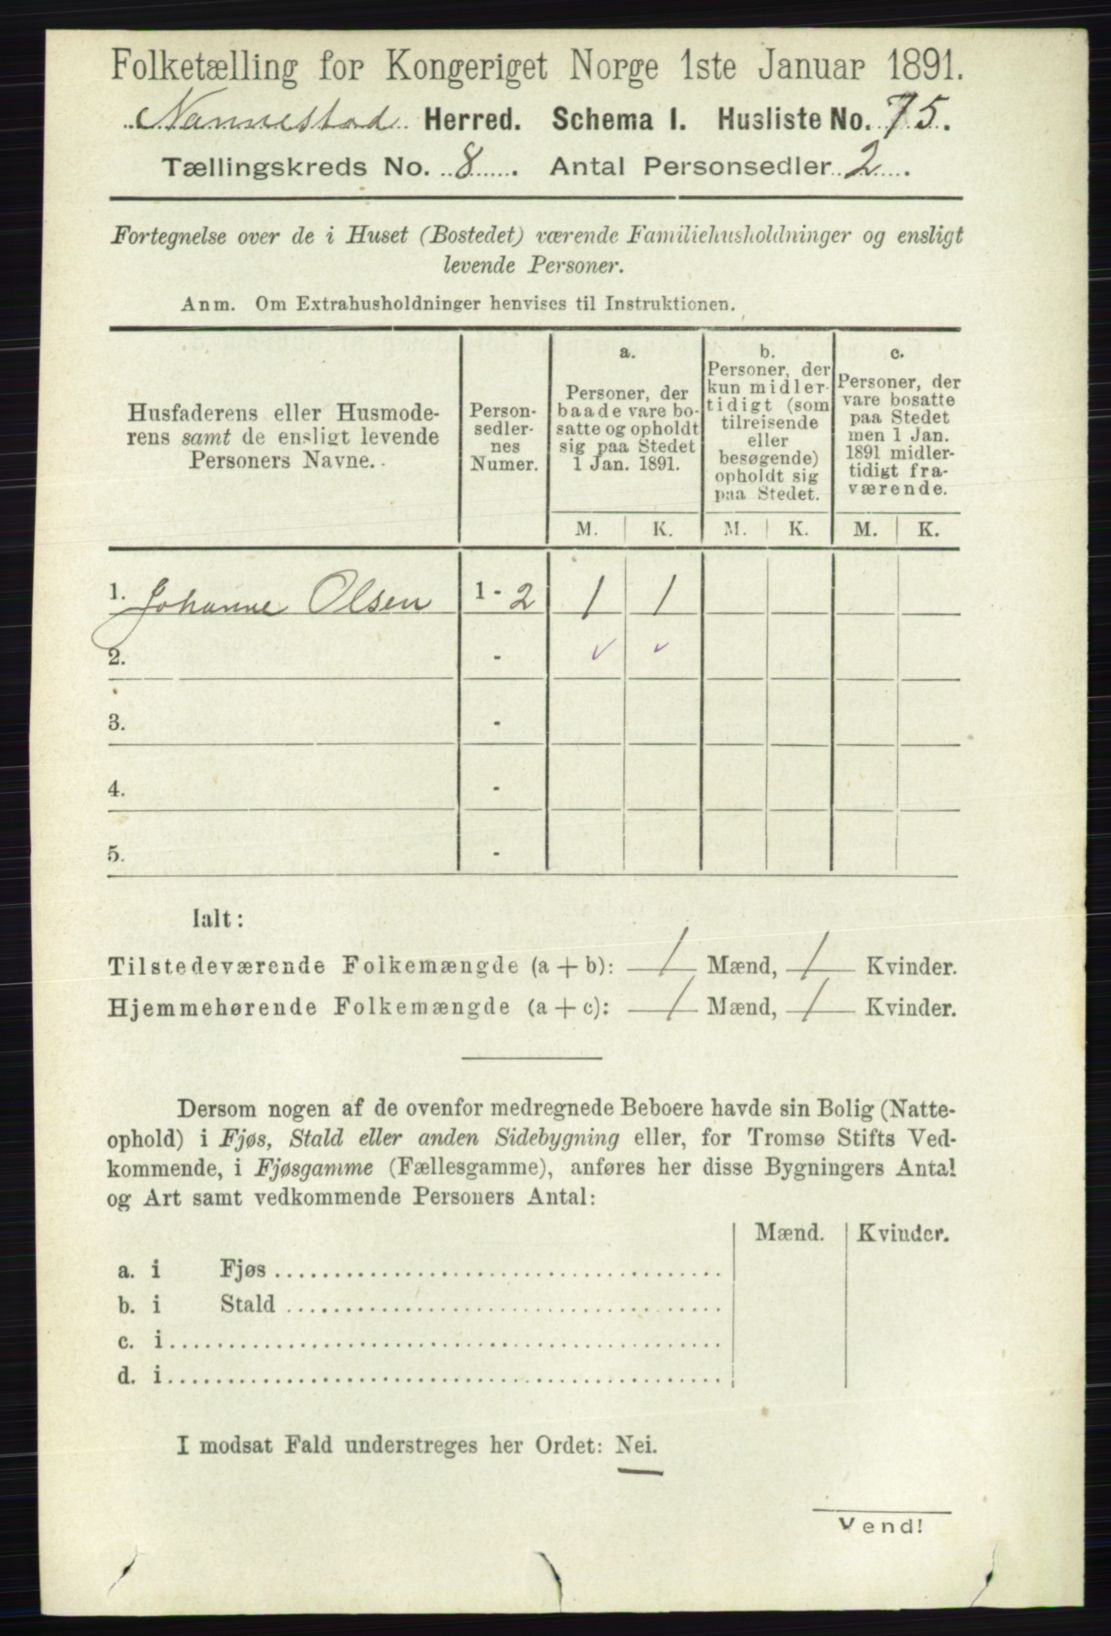 Folketælling for Kongeriget Norge 1ste Januar 1891.
Nannestad Herred. Schema I. Husliste No. 75.
Tællingskreds No. 8. Antal Personsedler 2.
Fortegnelse over de i Huset (Bostedet) værende Familiehusholdninger og ensligt
levende Personer.
Anm. Om Extrahusholdninger henvises til Instruktionen.
Husfaderens eller Husmode-
rens samt de ensligt levende
Personers Navne.
Person-
sedler-
nes
Numer.
a.
Personer, der
baade vare bo-
satte og opholdt
sig paa Stedet
1 Jan. 1891.
b.
Personer, der
kun midler-
tidigt (som
tilreisende
eller
besøgende)
opholdt sig
paa Stedet.
c.
Personer, der
vare bosatte
paa Stedet
men 1 Jan.
1891 midler-
tidigt fra-
værende.
M. K. M. K. M. K.
1. Johanne Olsen 1 - 2 1 1
2. - ✓ ✓
3. -
4. -
5. -
Ialt:
Tilstedeværende Folkemængde (a + b): 1 Mænd, 1 Kvinder.
Hjemmehørende Folkemængde (a + c): 1 Mænd, 1 Kvinder.
Dersom nogen af de ovenfor medregnede Beboere havde sin Bolig (Natte-
ophold) i Fjøs, Stald eller anden Sidebygning eller, for Tromsø Stifts Ved-
kommende, i Fjøsgamme (Fællesgamme), anføres her disse Bygningers Antal
og Art samt vedkommende Personers Antal:
Mænd. Kvinder.
a. i Fjøs
b. i Stald
c. i
d. i
I modsat Fald understreges her Ordet: Nei.
Vend!